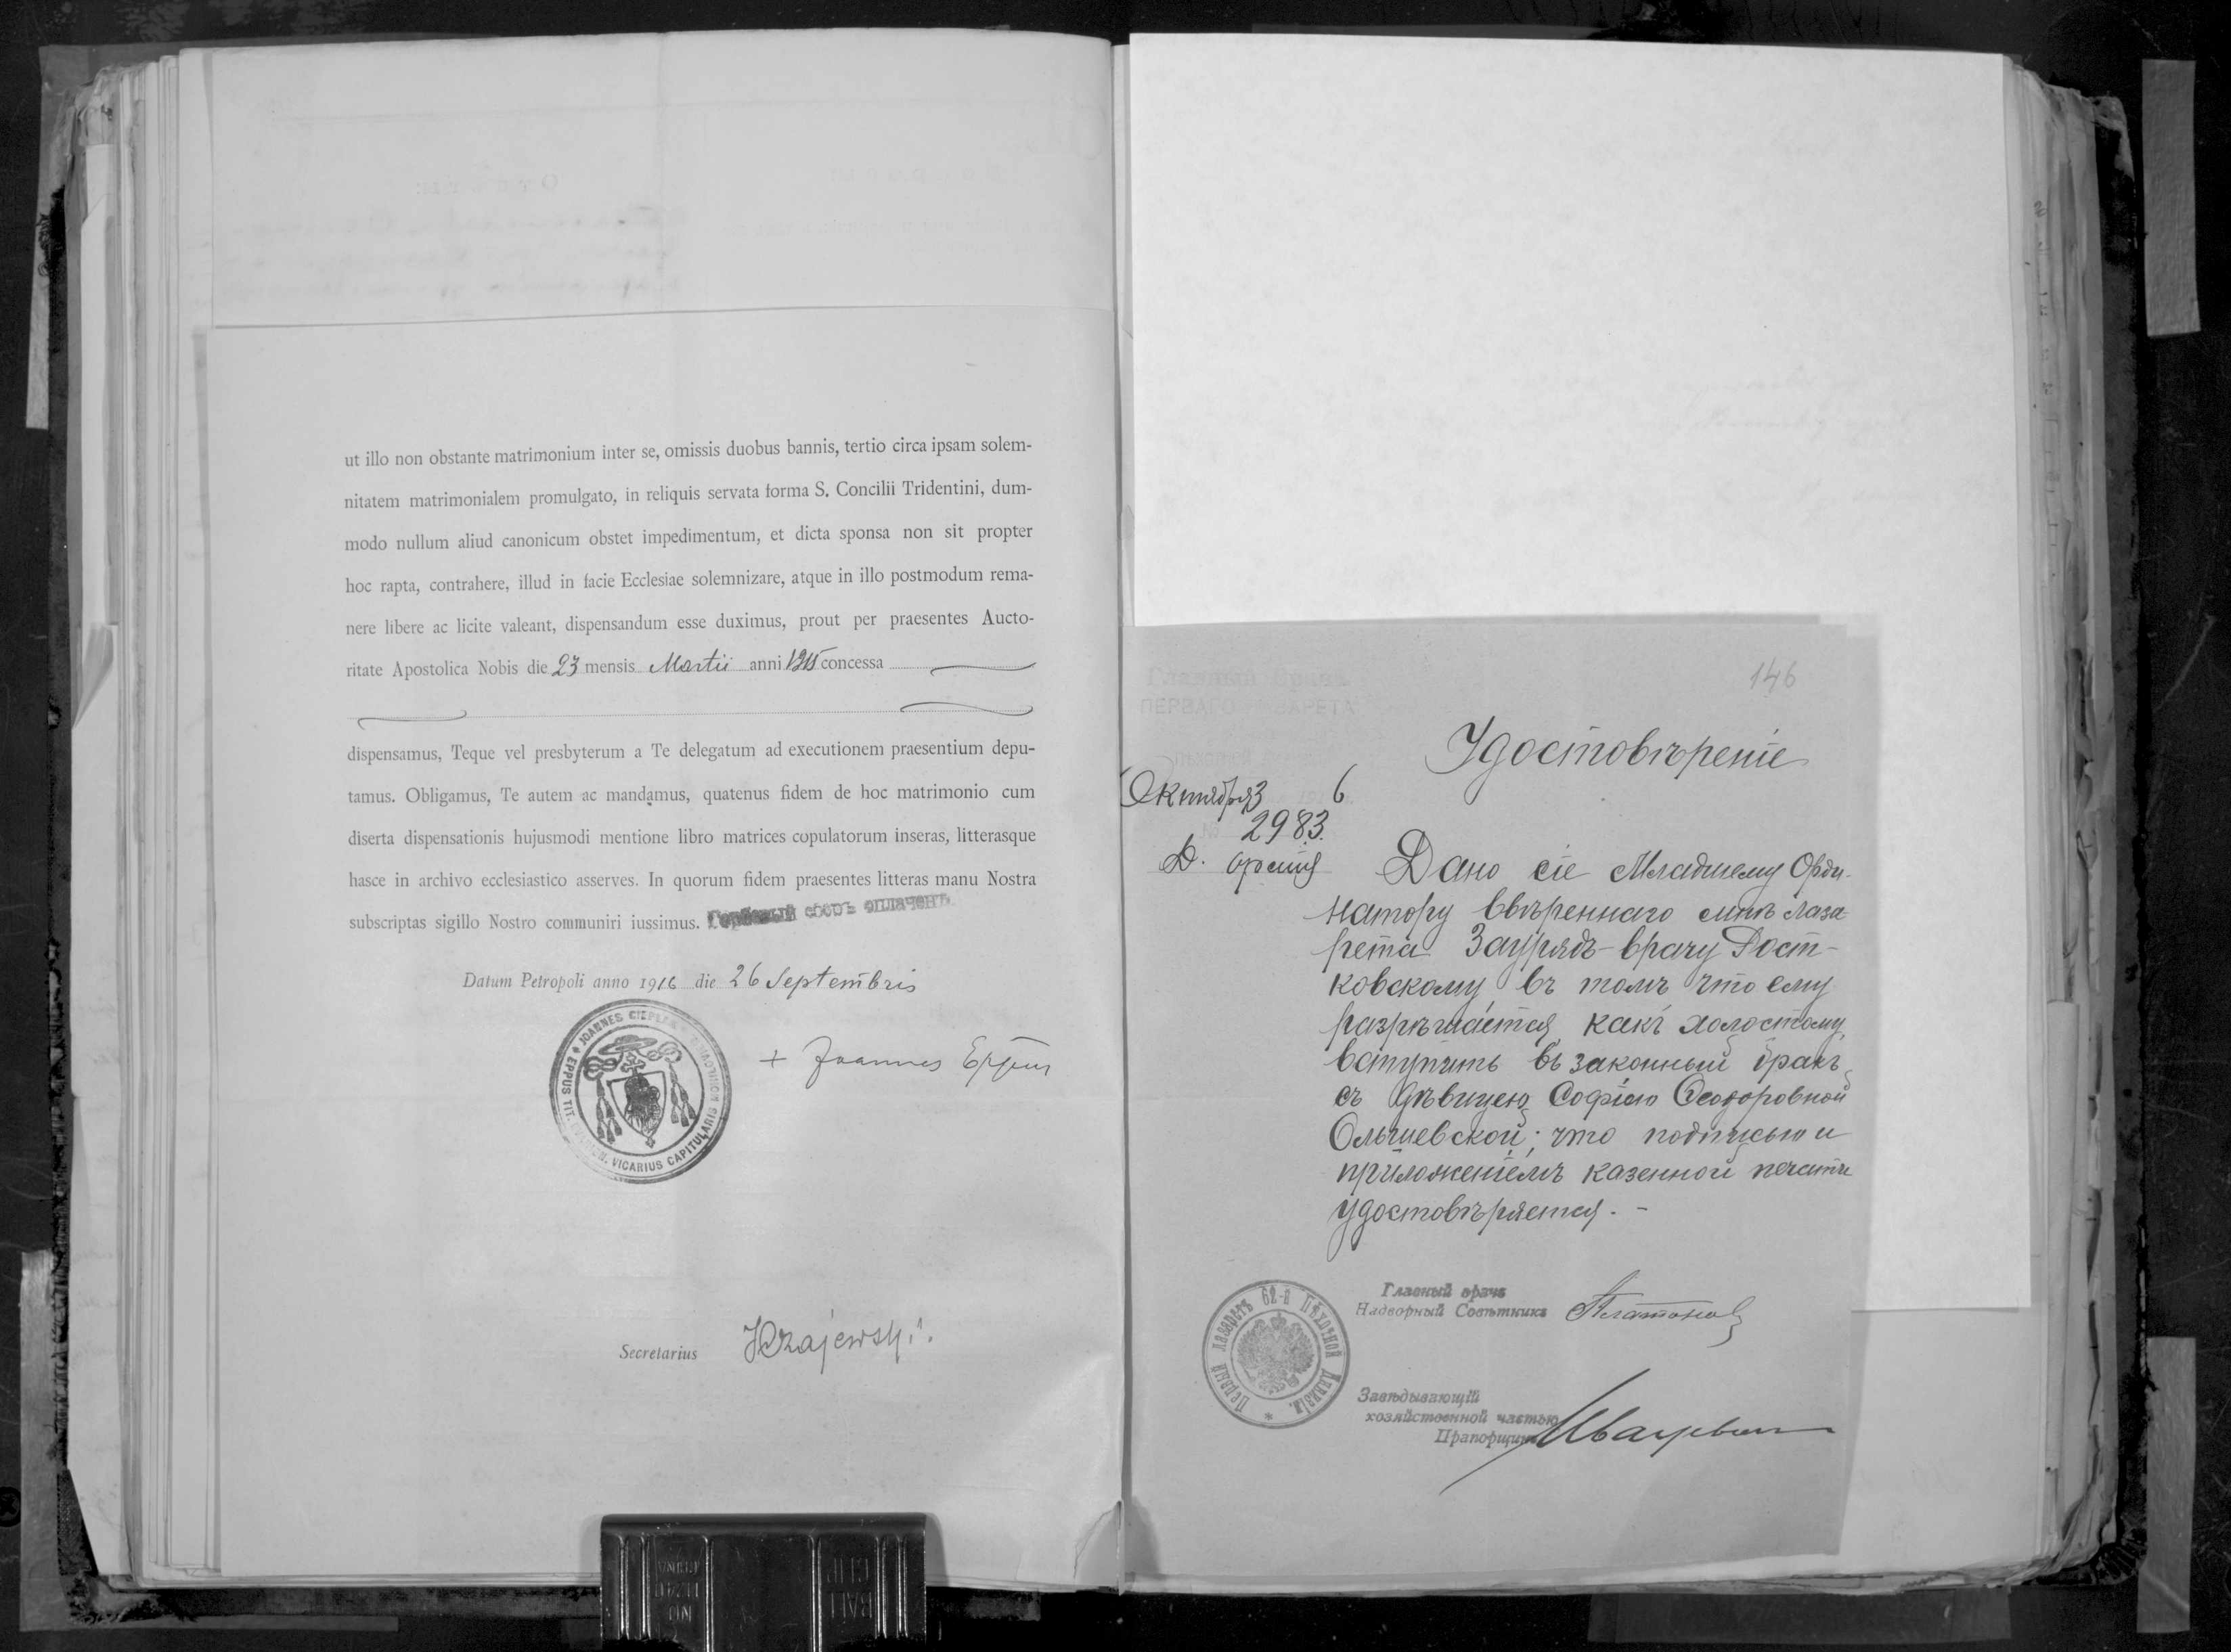 ut illo non obstante matrimonium inter se, omissis duobus bannis, tertio circa ipsam solem-
nitatem matrimonialem promulgato, in reliquis servata forma S. Concilii Tridentini, dum-
modo nullum aliud canonicum obstet impedimentum, et dicta sponsa non sit propter
hoc rapta, contrahere, illud in facie Ecclesiae solemnizare, atque in illo postmodum rema-
nere libere ac licite valeant, dispensandum esse duximus, prout per praesentes Aucto-
ritate Apostolica Nobis die 23 mensis Martii anni 1915 concessa
dispensamus, Teque vel presbyterum a Te delegatum ad executionem praesentium depu-
tamus. Obligamus, Te autem ac mandamus, quatenus fidem de hoc matrimonio cum
diserta dispensationis hujusmodi mentione libro matrices copulatorum inseras, litterasque
hasce in archivo ecclesiastico asserves. In quorum fidem praesentes litteras manu Nostra
subscriptas sigillo Nostro communiri iussimus. Гербовый сборъ оплаченъ
Datum Petropoli anno 1916 die 26 Septembris
JOANNES CIEPLAK EPPUS TIT. VICARIUS CAPITULARIS
+ Joannes Eppus
Secretarius Krajewski.
146
Главный Врачъ
ПЕРВАГО ЛАЗАРЕТА
Удостовѣреніе
Октября 3 6
2983.
Д. армія
Дано сіе Младшему Орди-
натору ввѣреннаго мнѣ лаза-
рета Заурядъ-врачу Рост-
ковскому въ томъ что ему
разрѣшается какъ холостому
вступить въ законный бракъ
съ дѣвицею Софіею Ѳеодоровной
Ольшевской; что подписью и
приложеніемъ казенной печати
удостовѣряется. -
Первый лазаретъ 62-й Пѣхотной Дивизіи.
Главный врачъ
Надворный Совѣтникъ Платоновъ
Завѣдывающій
хозяйственной частью
Прапорщикъ